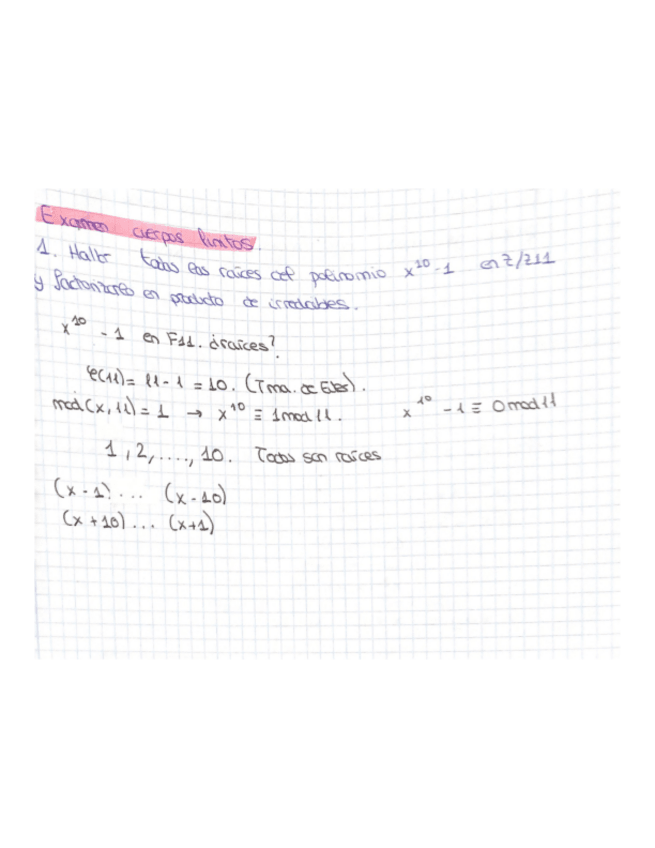 Examen cuerpos finitos.
1. Hallar todas las raíces del polinomio x¹⁰-1 en Z/Z11
y factonzarlo en producto de irreducibles.
x¹⁰ - 1 en F11. ¿raíces?
φ(11) = 11 - 1 = 10. (Tma. de Euler).
mcd(x, 11) = 1 → x¹⁰ ≡ 1 mod 11. x¹⁰ - 1 ≡ 0 mod 11
1, 2, ...., 10. Todas son raíces
(x - 1) ... (x - 10)
(x + 10) ... (x + 1)